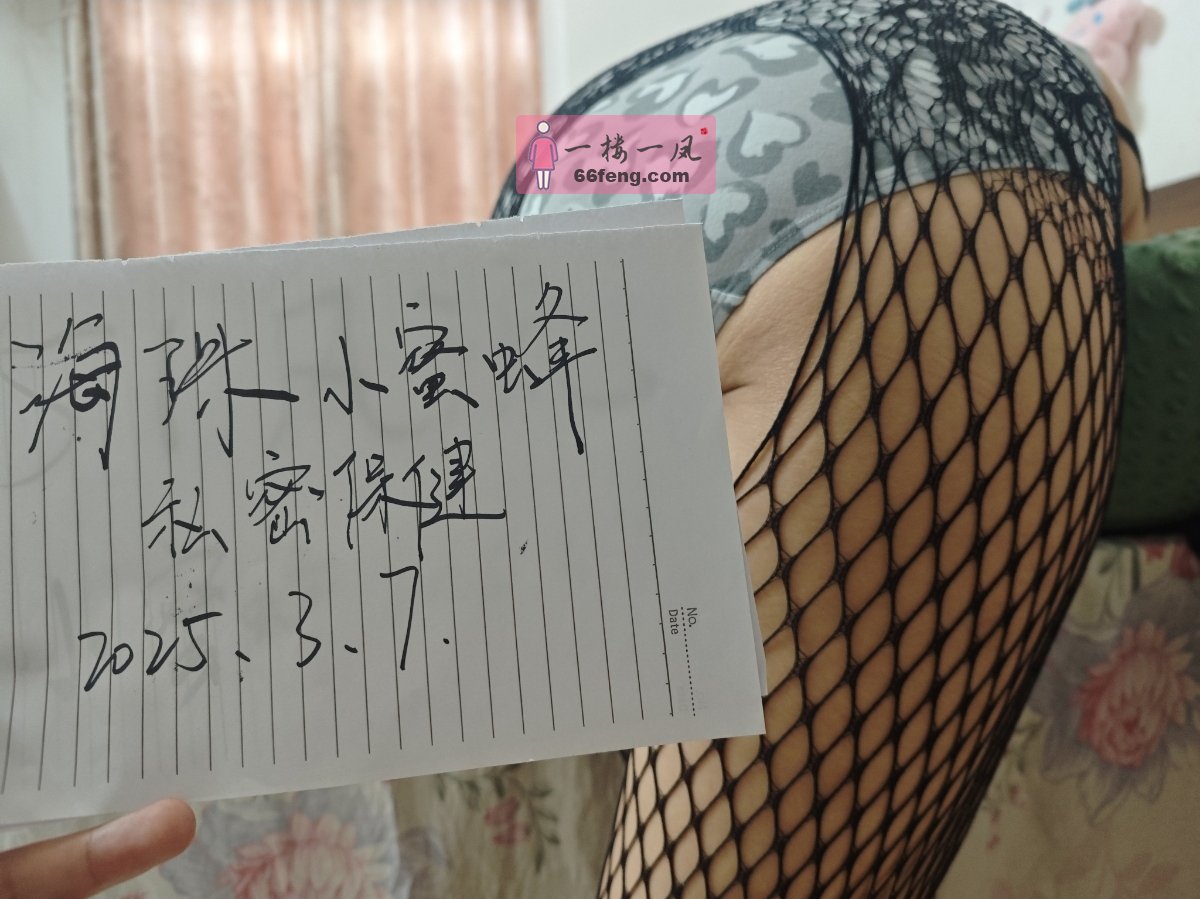 一楼一凤
66feng.com
海珠小蜜蜂
私密保健
2025.3.7.
No.
Date